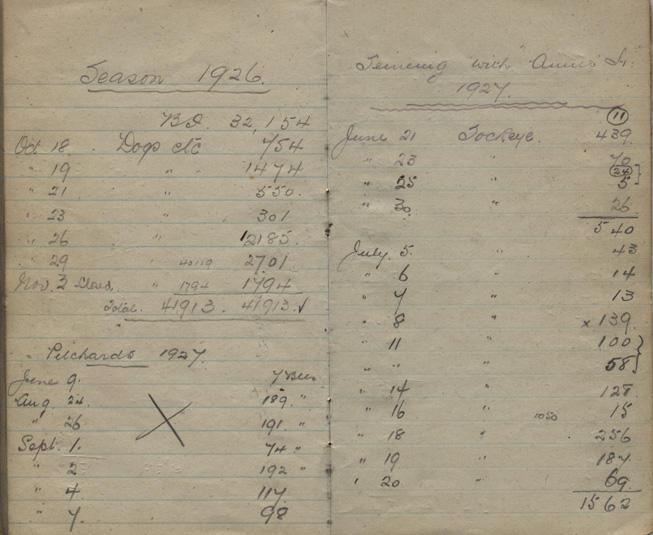 Season 1926.
32,154
Oct 18 Dogs etc 754
" 19 " " 1474
" 21 " 550.
" 23 " 301
" 26 " 2185.
" 29 " 40119 2701
Nov. 2 " 1794 1794
Total. 41913. 41913.√
Pilchards 1927.
June 9.
Aug 24. 189. "
" 26 191. "
Sept. 1. 74 "
" 2 192 "
" 4 117
" 7. 98
Seining with "Annie"
1927.
11
June 21 Sockeye. 439.
" 23 " 70
24
" 25 " 5
" 30 " 26
540
July. 5. " 43
" 6 " 14
" 7 " 13
" 8 " x 139.
" 11 " 100
" " " 58
" 14 " 128
" 16 " 1050 15
" 18 " . 256
" 19 " 187.
" 20 " 69.
1562